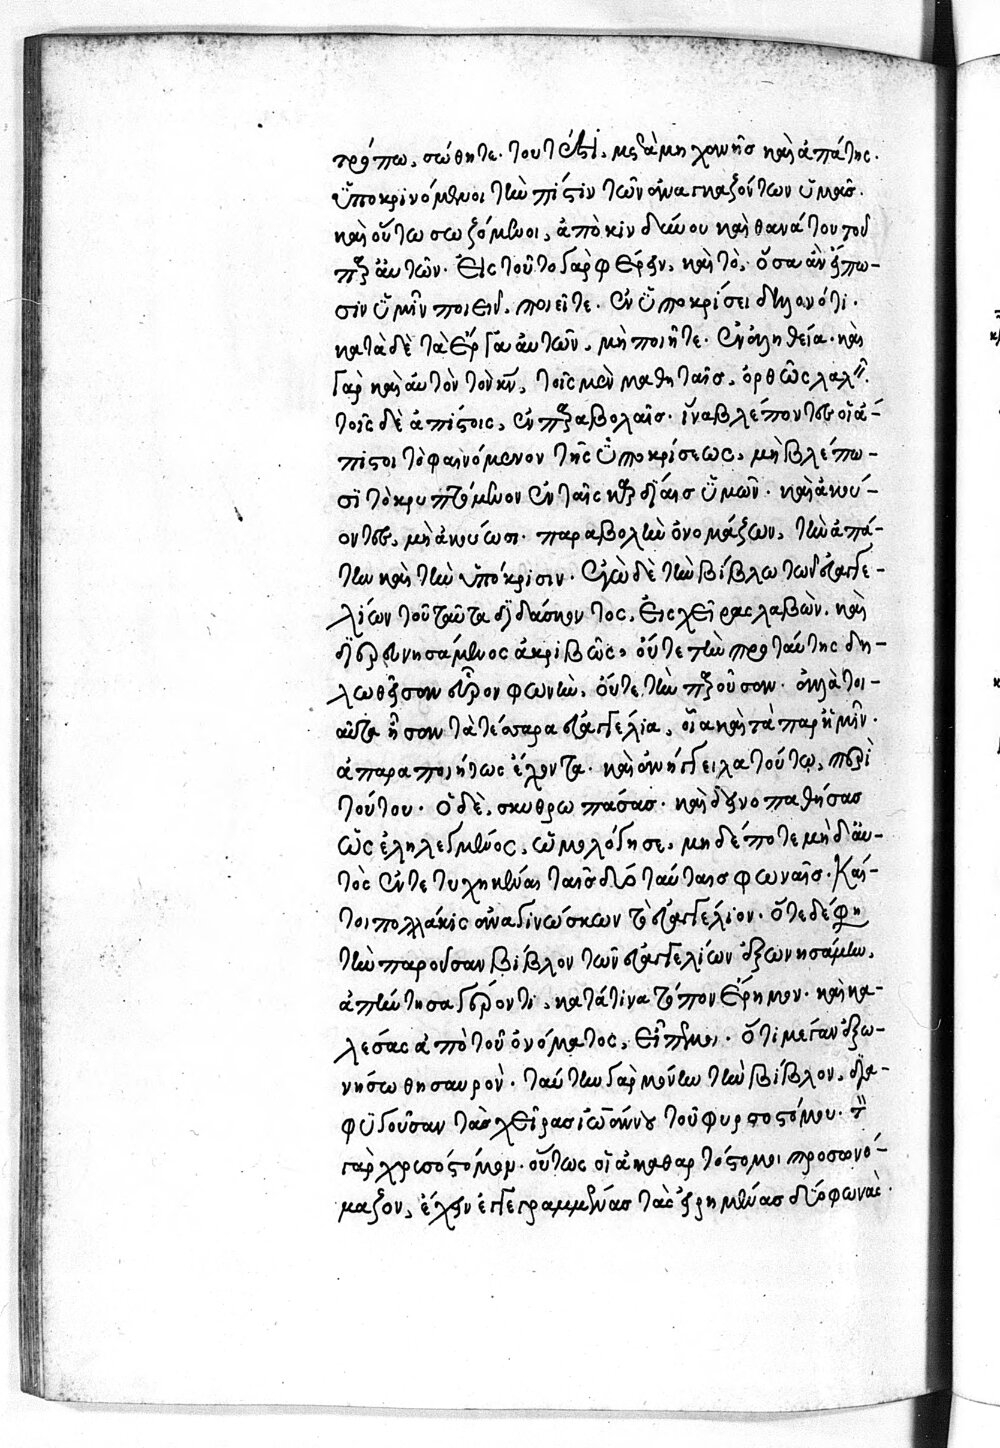 τρόπω, σώθητε. τουτέστι, μετὰ μηχανῆς καὶ ἀπάτης.
ὑποκρινόμενοι τὴν πίστιν τῶν ἀναγκαζόντων ὑμᾶς.
καὶ οὕτω σωζόμενοι, ἀπὸ κινδύνου καὶ θανάτου τοῦ
παρ αὐτῶν. εἰς τοῦτο γὰρ φέρειν, καὶ τὸ, ὅσα ἂν εἴπω-
σιν ὑμῖν ποιεῖν, ποιεῖτε. ἐν ὑποκρίσει δηλονότι.
κατὰ δὲ τὰ ἔργα αὐτῶν, μὴ ποιῆτε. ἐν ἀληθεία. καὶ
γὰρ καὶ αὐτὸν τὸν κν, τοῖς μὲν μαθηταῖς, ὀρθῶς λαλ.
τοῖς δὲ ἀπίστοις, ἐν παραβολαῖς. ἵνα βλέποντες οἱ ἄ-
πιστοι τὸ φαινόμενον τῆς ὑποκρίσεως, μὴ βλέπω-
σι τὸ κρυπτόμενον ἐν ταῖς καρδίαις ὑμῶν. καὶ ἀκού-
οντες, μὴ ἀκούωσι. παραβολὴν ὀνομάζων, τὴν ἀπά-
την καὶ τὴν ὑπόκρισιν. ἐγὼ δὲ τὴν βίβλω τῶν εὐαγγε-
λίων τοῦ ταῦτα διδάσκοντος, εἰς χεῖρας λαβὼν, καὶ
διερευνησάμενος ἀκριβῶς, οὔτε τὴν πρὸ ταύτης δη-
λωθεῖσαν εὗρον φωνὴν, οὔτε τὴν παροῦσαν. ἀλλὰ τοι-
αῦτα ἦσαν τὰ τέσσαρα εὐαγγέλια, οἷα καὶ τὰ παρ ἡμῖν.
ἀπαραποιήτως ἔχοντα. καὶ ἀνήγγειλα τούτω, περὶ
τούτου. ὁ δὲ, σκυθρωπάσας. καὶ δεινοπαθήσας
ὡς ἐληλεγμένος, ὡμολόγησε, μηδέποτε μὴδ αὐ-
τὸς ἐντετυχηκέναι ταῖς δυσὶ ταύταις φωναῖς. καί-
τοι πολλάκις ἀναγινώσκων τὸ εὐαγγέλιον. ὅτε δέ φη
τὴν παροῦσαν βίβλον τῶν εὐαγγελίων ἐξωνησάμην,
ἀπήντησα γέροντι, κατά τινα τόπον ἔρημον. καὶ κα-
λέσας ἀπὸ τοῦ ὀνόματος, εἶπέ μοι. ὅτι μέγαν ἐξω-
νήσω θησαυρόν. ταύτην γὰρ μόνην τὴν βίβλον, δια-
φυγοῦσαν τὰς χεῖρας ἰωάννου τοῦ φυρσοστόμου. τὸν
γὰρ χρυσόστομον, οὕτως οἱ ἀκαθαρτόστομοι προσωνό-
μαζον, ἔχειν ἐγγεγραμμένας τὰς εἰρημένας δύο φωνάς.